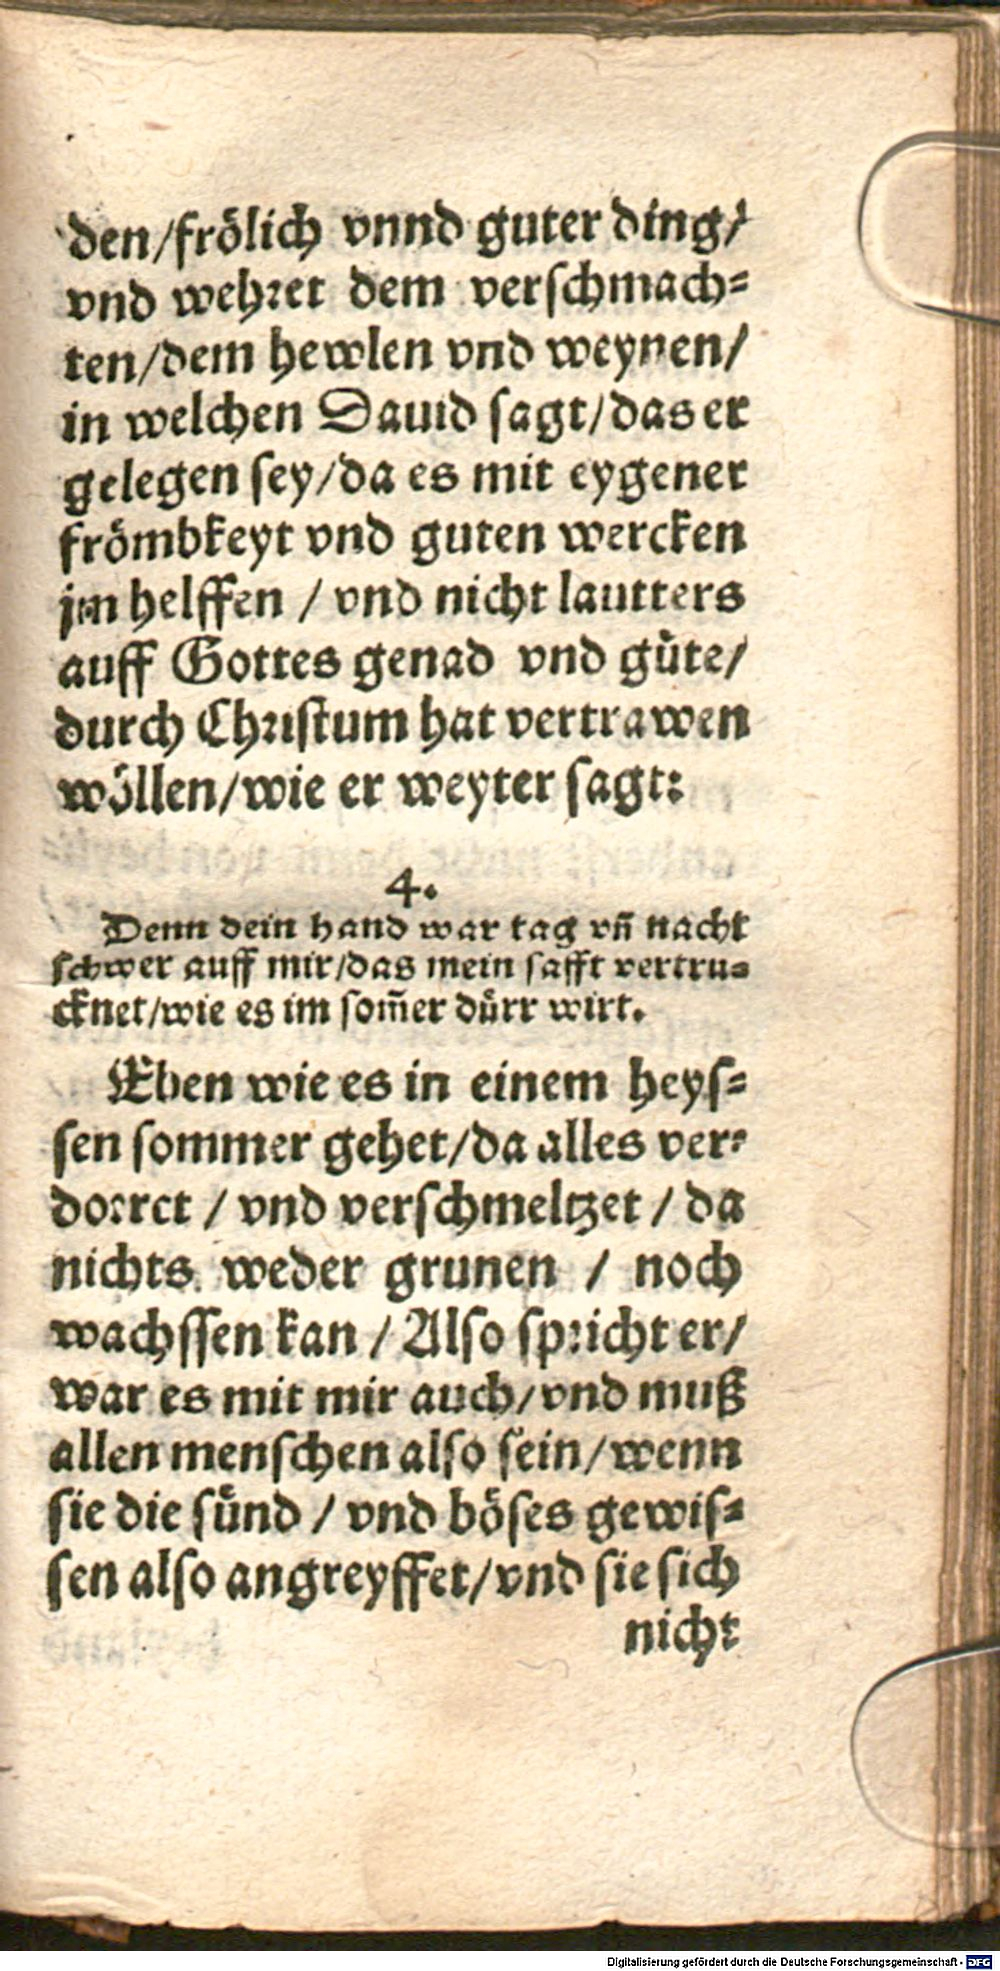 den/frölich vnnd guter ding/
vnd wehret dem verschmach-
ten/dem hewlen vnd weynen/
in welchen Dauid sagt/das er
gelegen sey/da es mit eygener
frömbkeyt vnd guten wercken
jm helffen / vnd nicht lautters
auff Gottes genad vnd güte/
durch Christum hat vertrawen
wöllen/wie er weyter sagt:
4.
Denn dein hand war tag vñ nacht
schwer auff mir/das mein safft vertru-
cknet/wie es im som̃er dürr wirt.
Eben wie es in einem heys-
sen sommer gehet/da alles ver-
dorret / vnd verschmeltzet / da
nichts weder grunen / noch
wachssen kan / Also spricht er/
war es mit mir auch/vnd muß
allen menschen also sein/wenn
sie die sünd / vnd böses gewis-
sen also angreyffet/vnd sie sich
nicht
Digitalisierung gefördert durch die Deutsche Forschungsgemeinschaft - DFG